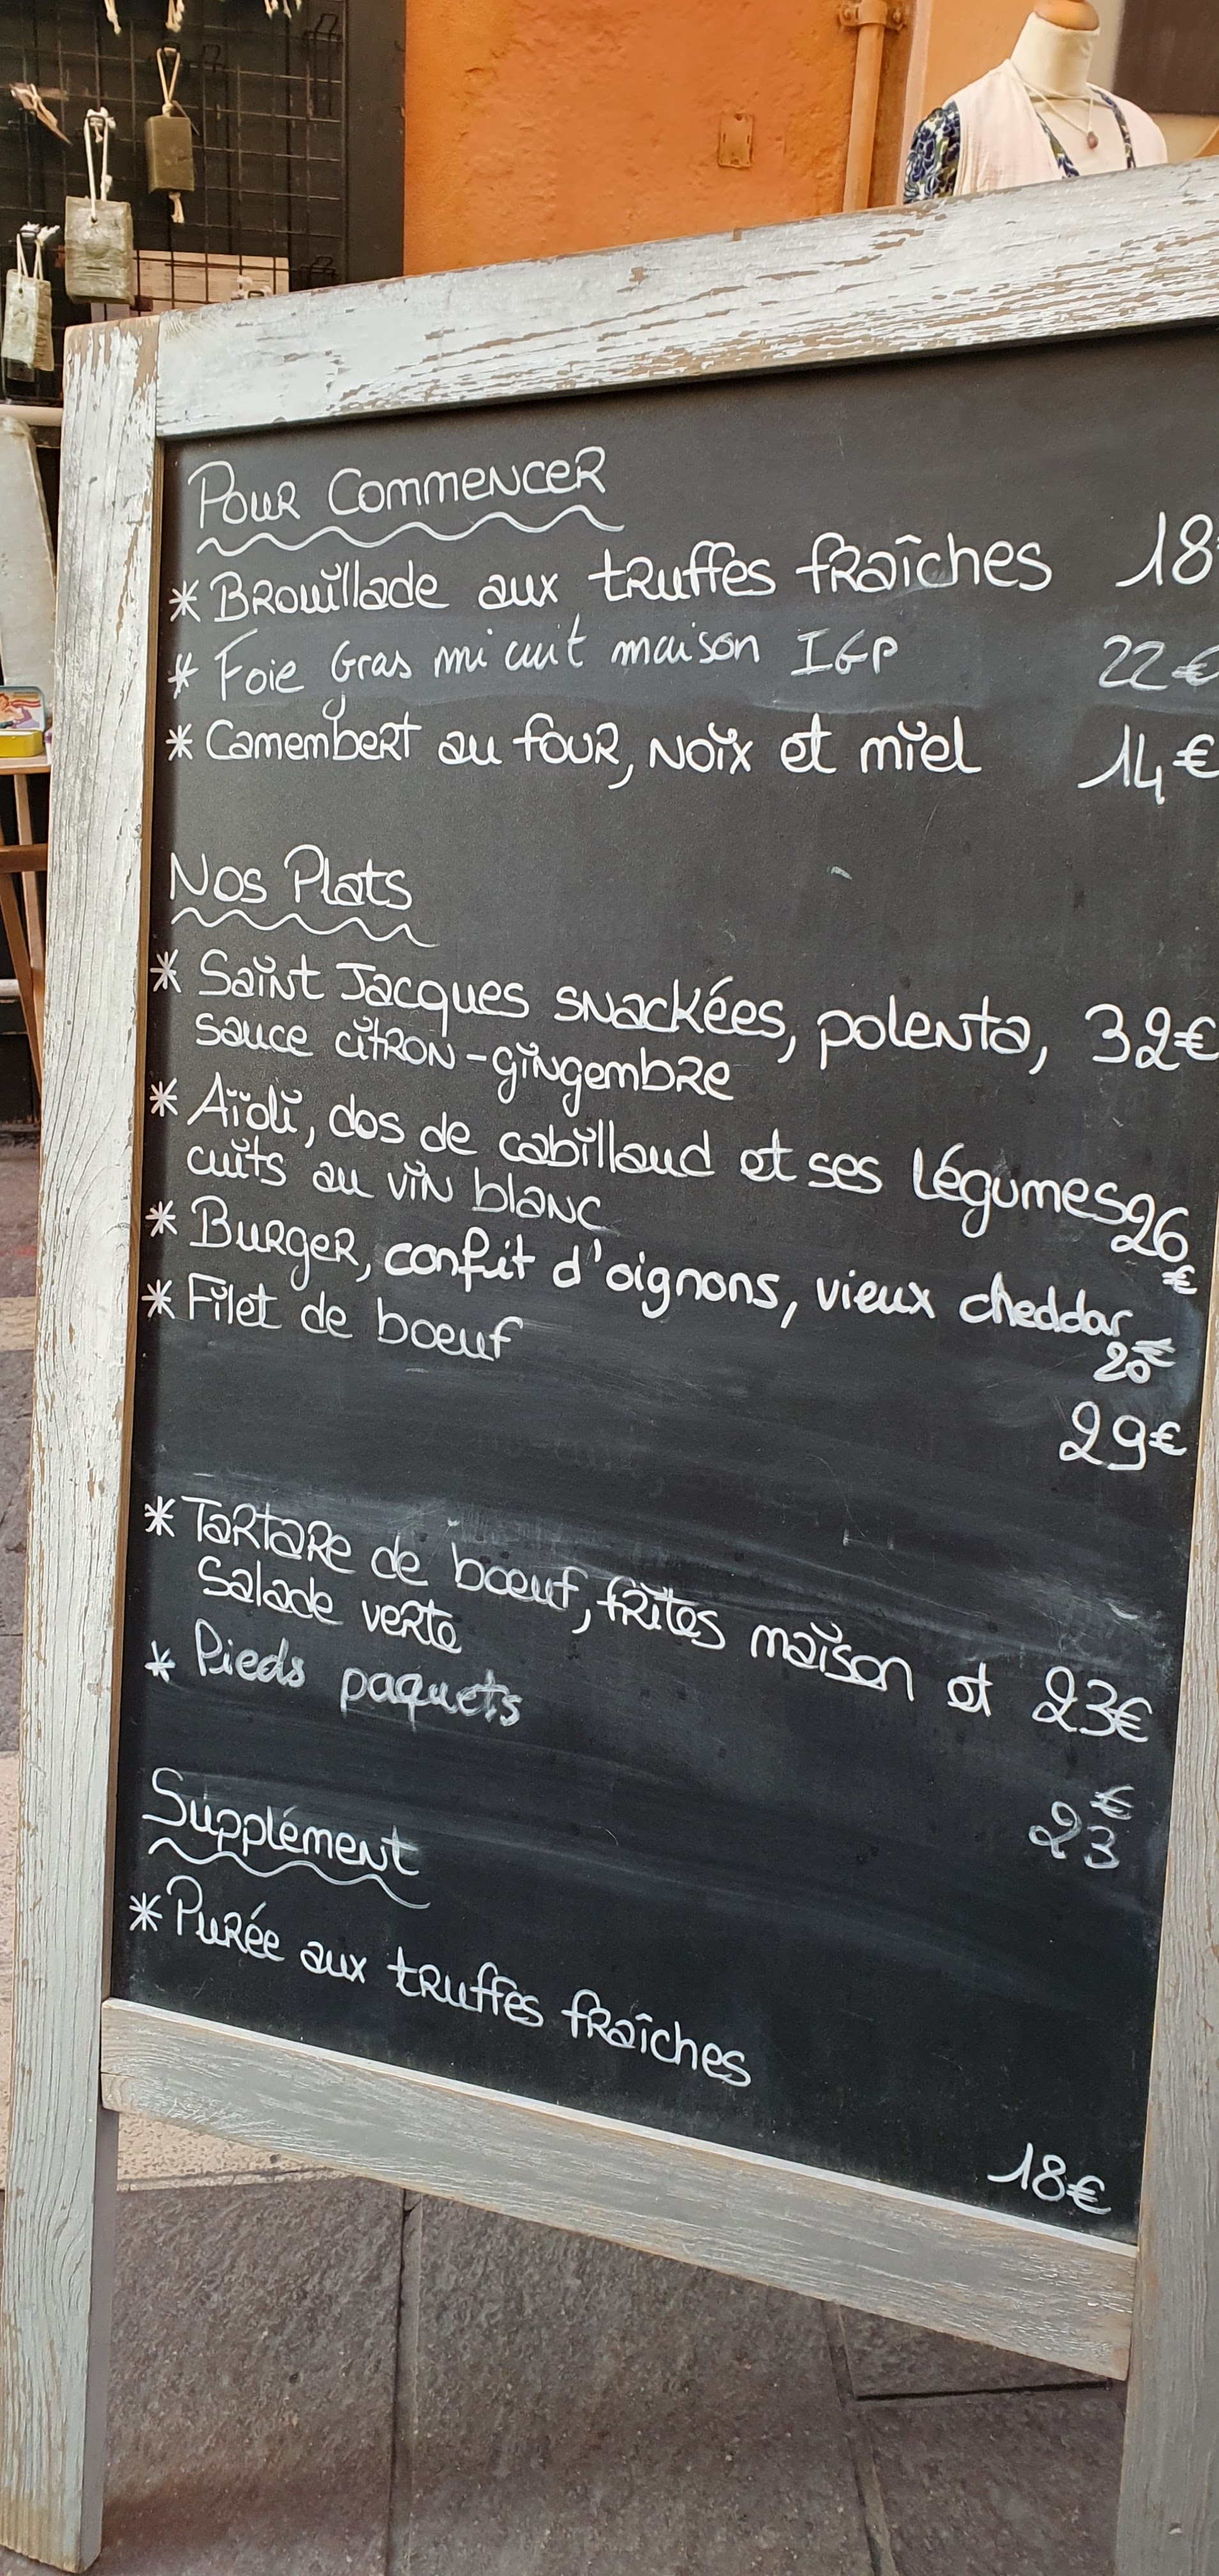 Pour Commencer
* Brouillade aux truffes fraîches 18
* Foie Gras mi cuit maison IGP 22€
* Camembert au four, noix et miel 14€
Nos Plats
* Saint Jacques snackées, polenta, 32€
sauce citron-gingembre
* Aïoli, dos de cabillaud et ses légumes 26€
cuits au vin blanc
* Burger, confit d'oignons, vieux cheddar
20€
* Filet de boeuf
29€
* Tartare de boeuf, frites maison et 23€
salade verte
* Pieds paquets
23€
Supplément
* Purée aux truffes fraîches
18€